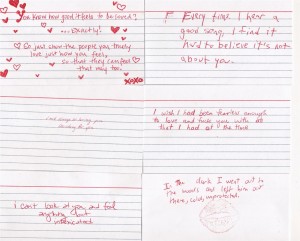 You know how good it feels to be loved?
...exactly!
So just show the people you truly
love just how you feel,
so that they can feel
that way too.
XOXO
Every time I hear a
good song, I find it
hard to believe it's not
about you.
I wish I had been fearless enough
to love and fuck you with all
that I had at the time
i can't look at you and feel
anything but
intoxicated
In the dark I went out in
the woods and left him out
there, cold, unprotected.